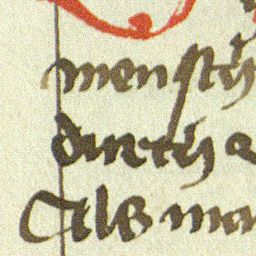 mensch
durch
Als ma